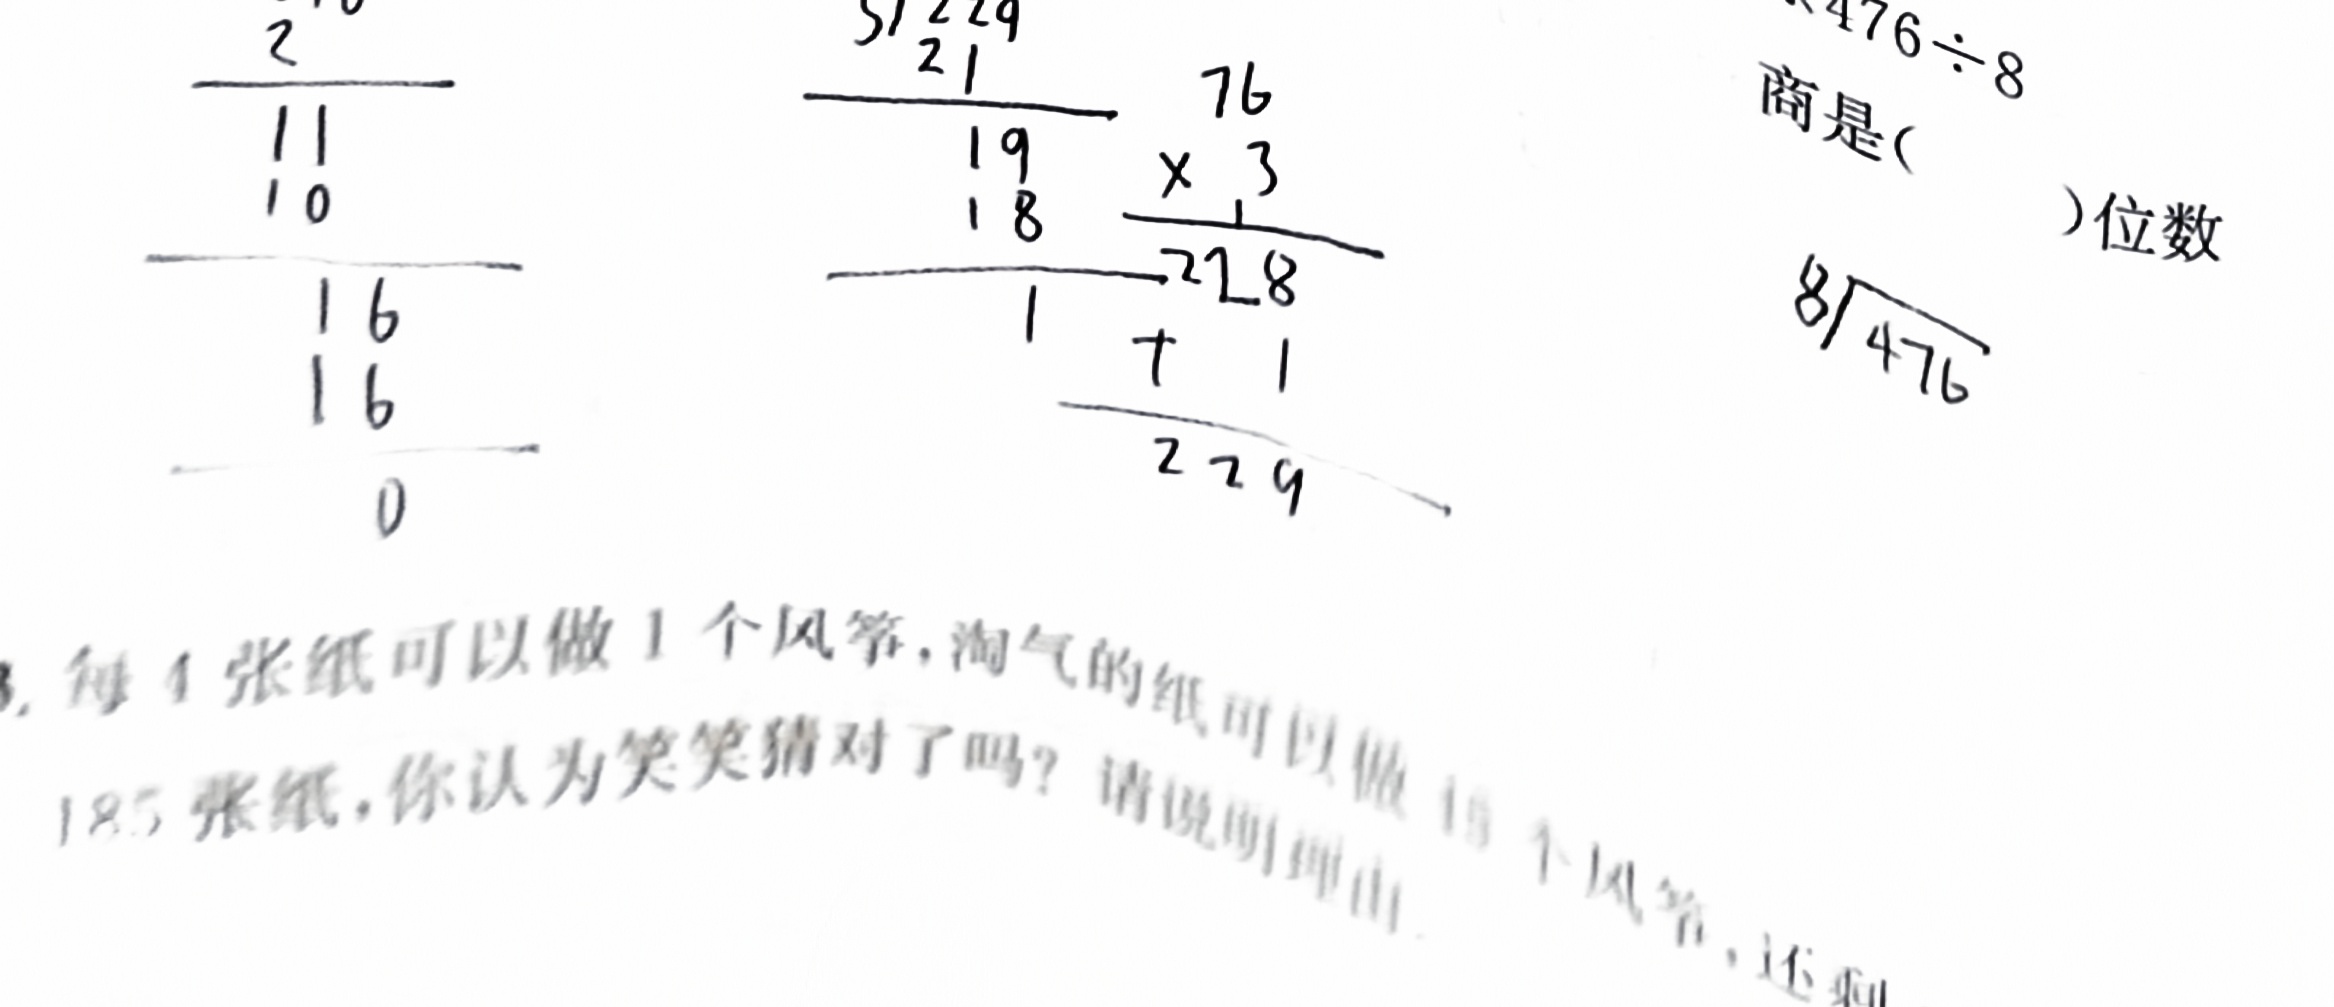 2
11
10
16
16
0
3 229
21
19
18
1
76
× 3
1
228
+ 1
229
476÷8
商是( )位数
8 476
每4张纸可以做1个风筝,淘气的纸可以做 个风筝,还剩
185张纸,你认为笑笑猜对了吗?请说明理由.